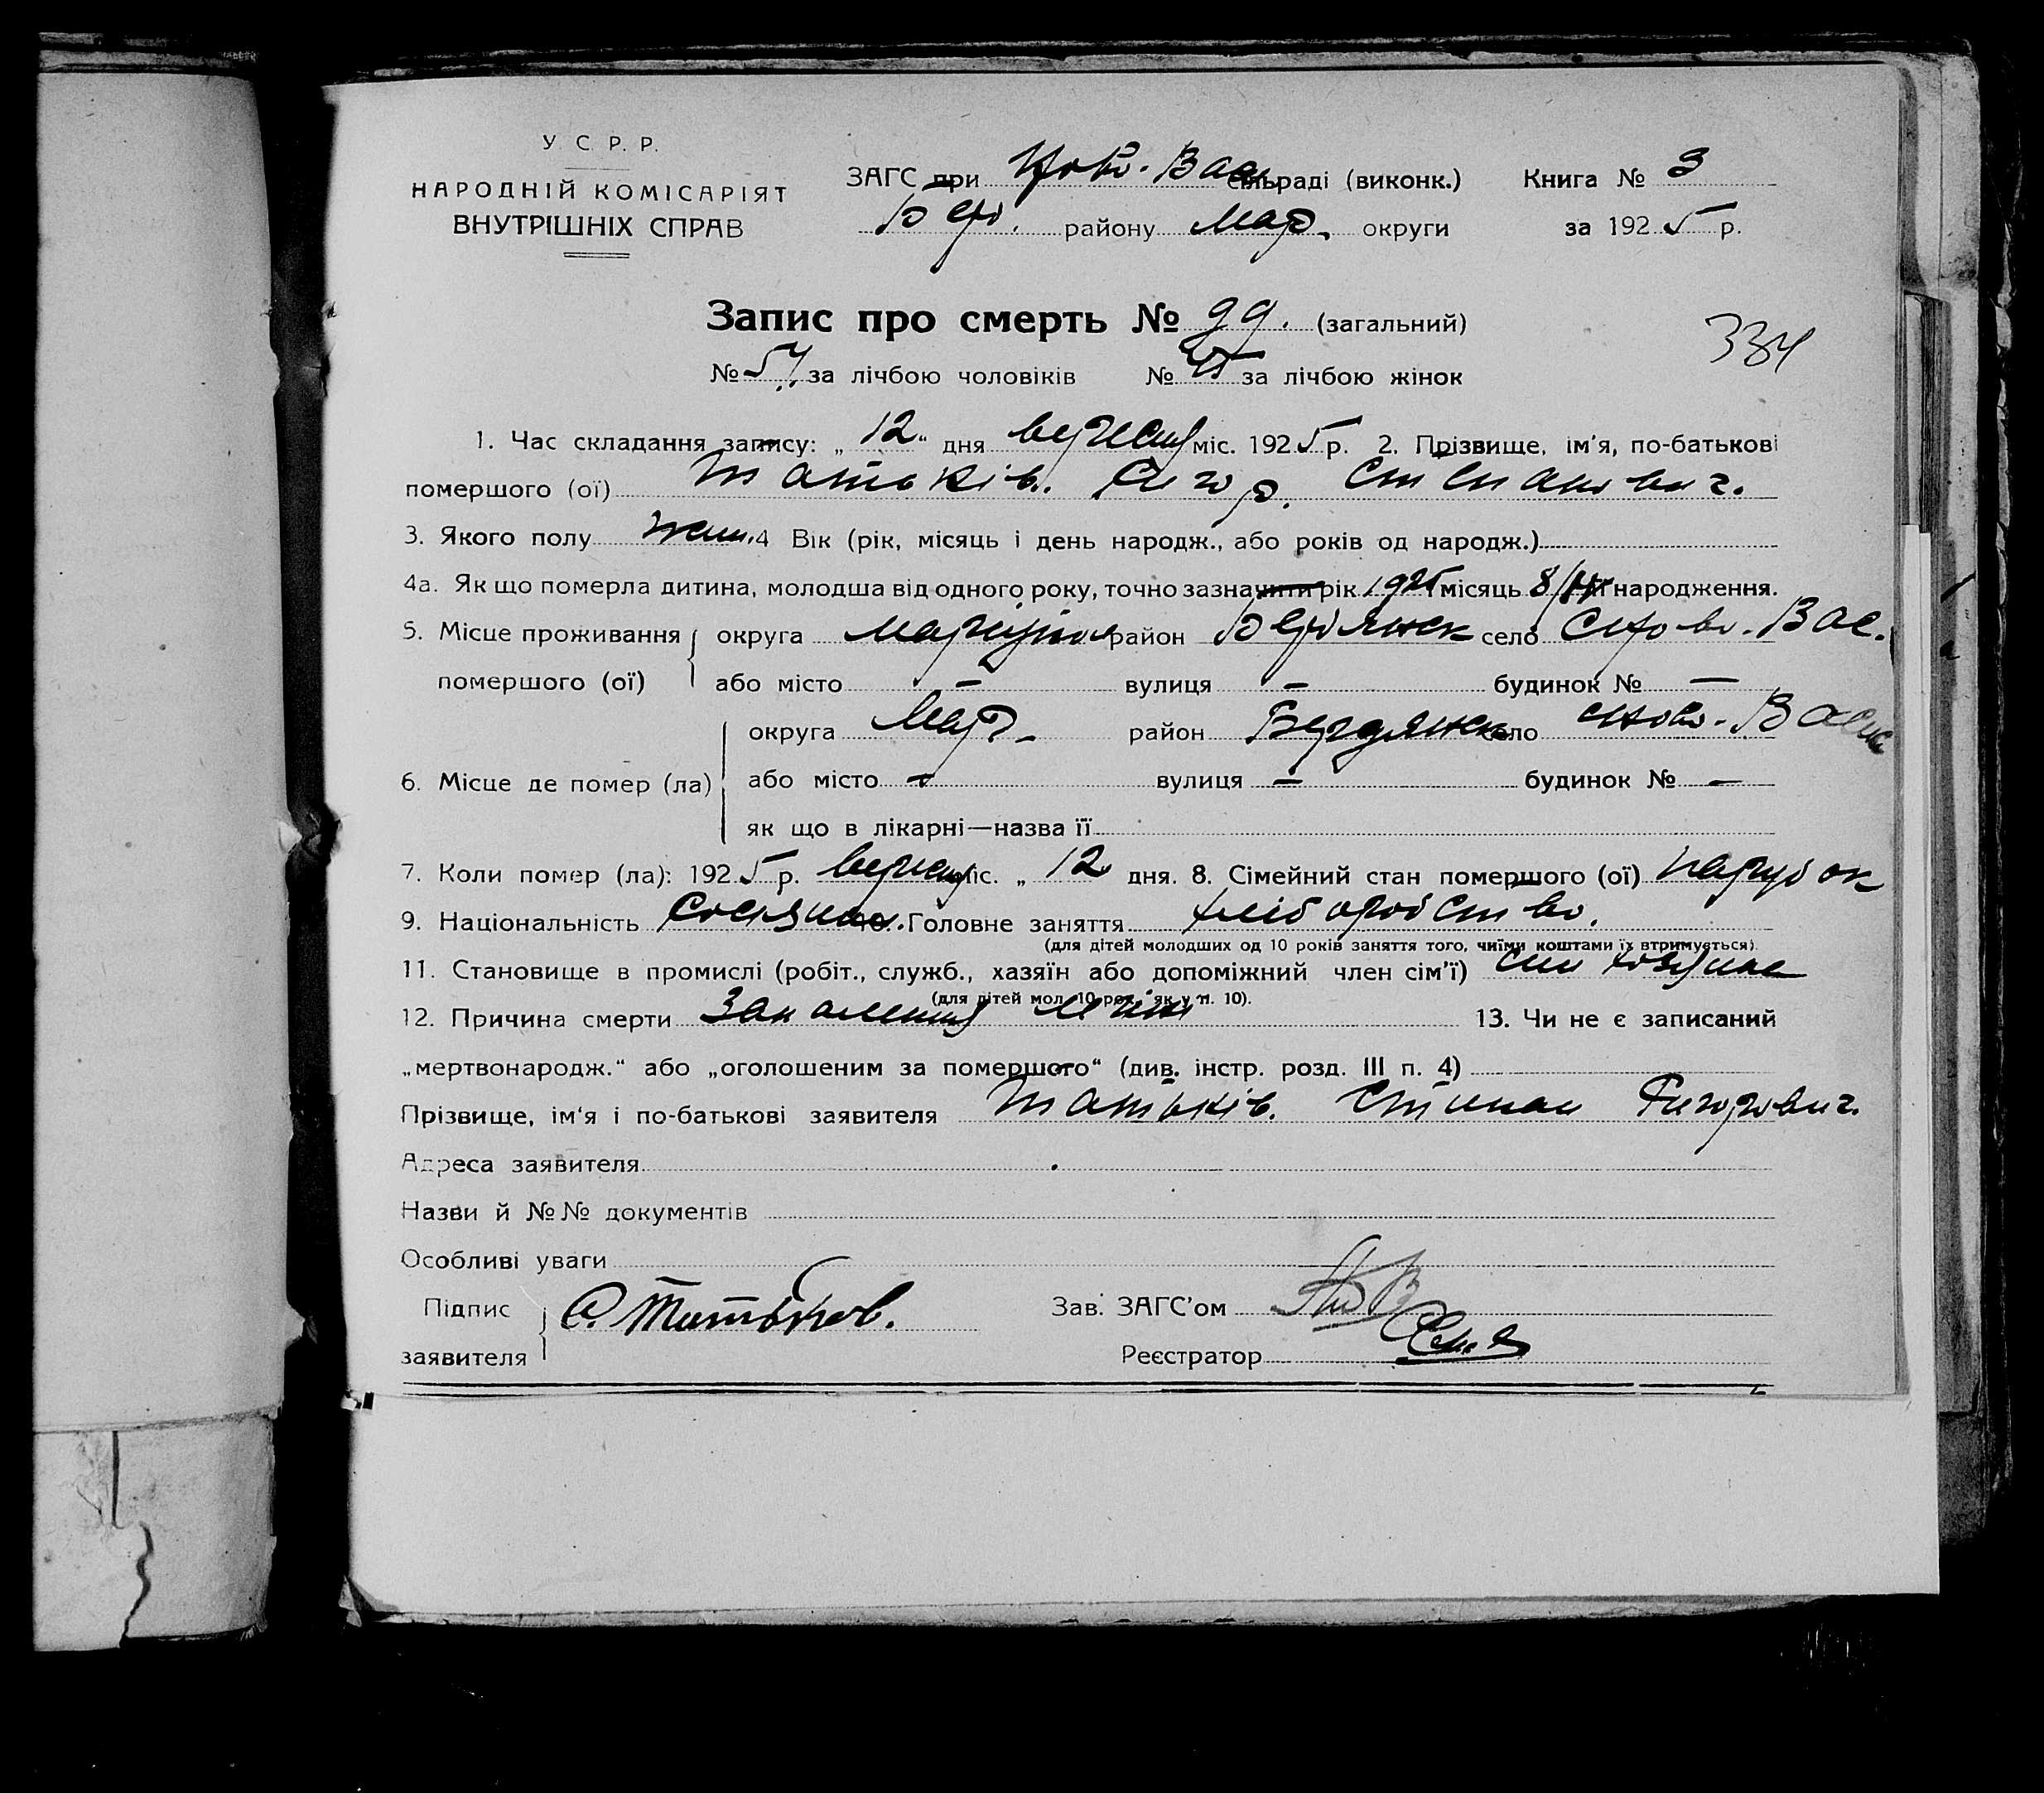 У. С. Р. Р.
НАРОДНІЙ КОМІСАРІЯТ
ВНУТРІШНІХ СПРАВ
ЗАГС при Ново-Вас. сільраді (виконк.) Книга № 3
Бер. району Мар. округи за 1925 р.
Запис про смерть № 99. (загальний)
334
№ 54 за лічбою чоловіків № 45 за лічбою жінок
1. Час складання запису: „12“ дня вересня міс. 1925 р. 2. Прізвище, ім'я, по-батькові
померлого (ої) Татьків. Гигор. Стіпанович.
3. Якого полу 4 Вік (рік, місяць і день народж., або років од народж.)
4а. Як що померла дитина, молодша від одного року, точно зазначити рік 1925 місяць 8/ народження.
5. Місце проживання округа Маріупіл район Бердянск село Ново-Вас.
помершого (ої) або місто — вулиця — будинок № —
округа Мар. район Бердянск село Ново-Васил
6. Місце де помер (ла) або місто — вулиця — будинок № —
як що в лікарні—назва її
7. Коли помер (ла): 1925 р. вересня міс. „12 дня. 8. Сімейний стан помершого (ої) парубок
9. Національність 10. Головне заняття хліборобство.
(для дітей молодших од 10 років заняття того, чиїми коштами їх втримується).
11. Становище в промислі (робіт., служб., хазяїн або допоміжний член сім'ї) син хозяїна
(для дітей мол. 10 рок. як у п. 10).
12. Причина смерти Запаления 13. Чи не є записаний
„мертвонародж.“ або „оголошеним за помершого“ (див. інстр. розд. III п. 4)
Прізвище, ім'я і по-батькові заявителя Татьків. Стіпан Гигорович.
Адреса заявителя
Назви й №№ документів
Особливі уваги
Підпис заявителя С. Татьков.
Зав. ЗАГС'ом
Реєстратор